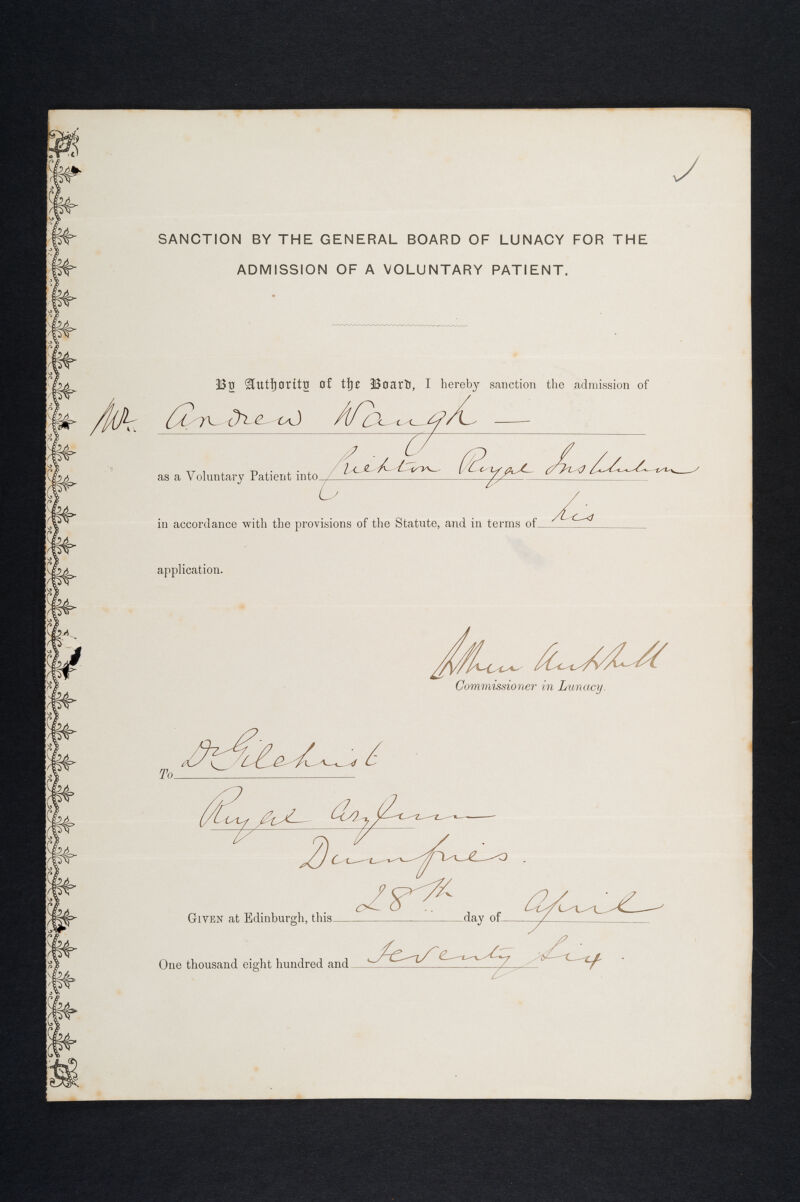 SANCTION BY THE GENERAL BOARD OF LUNACY FOR THE
ADMISSION OF A VOLUNTARY PATIENT.
By Authority of the Board, I hereby sanction the admission of
Mr. Andrew Waugh —
as a Voluntary Patient into Crichton Royal Institution
in accordance with the provisions of the Statute, and in terms of his
application.
Arthur Mitchell
Commissioner in Lunacy.
To Dr Gilchrist
Royal Asylum
Dumfries.
GIVEN at Edinburgh, this 28th day of April
One thousand eight hundred and Seventy Six.